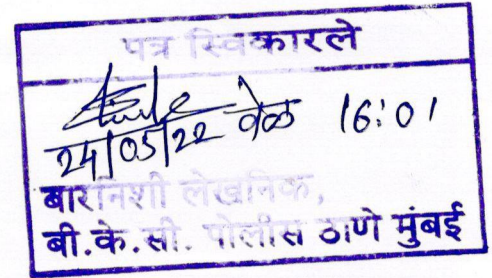 पत्र स्विकारले
24/05/22 वेळ 16:01
बारनिशी लेखनिक,
बी.के.सी. पोलीस ठाणे मुंबई